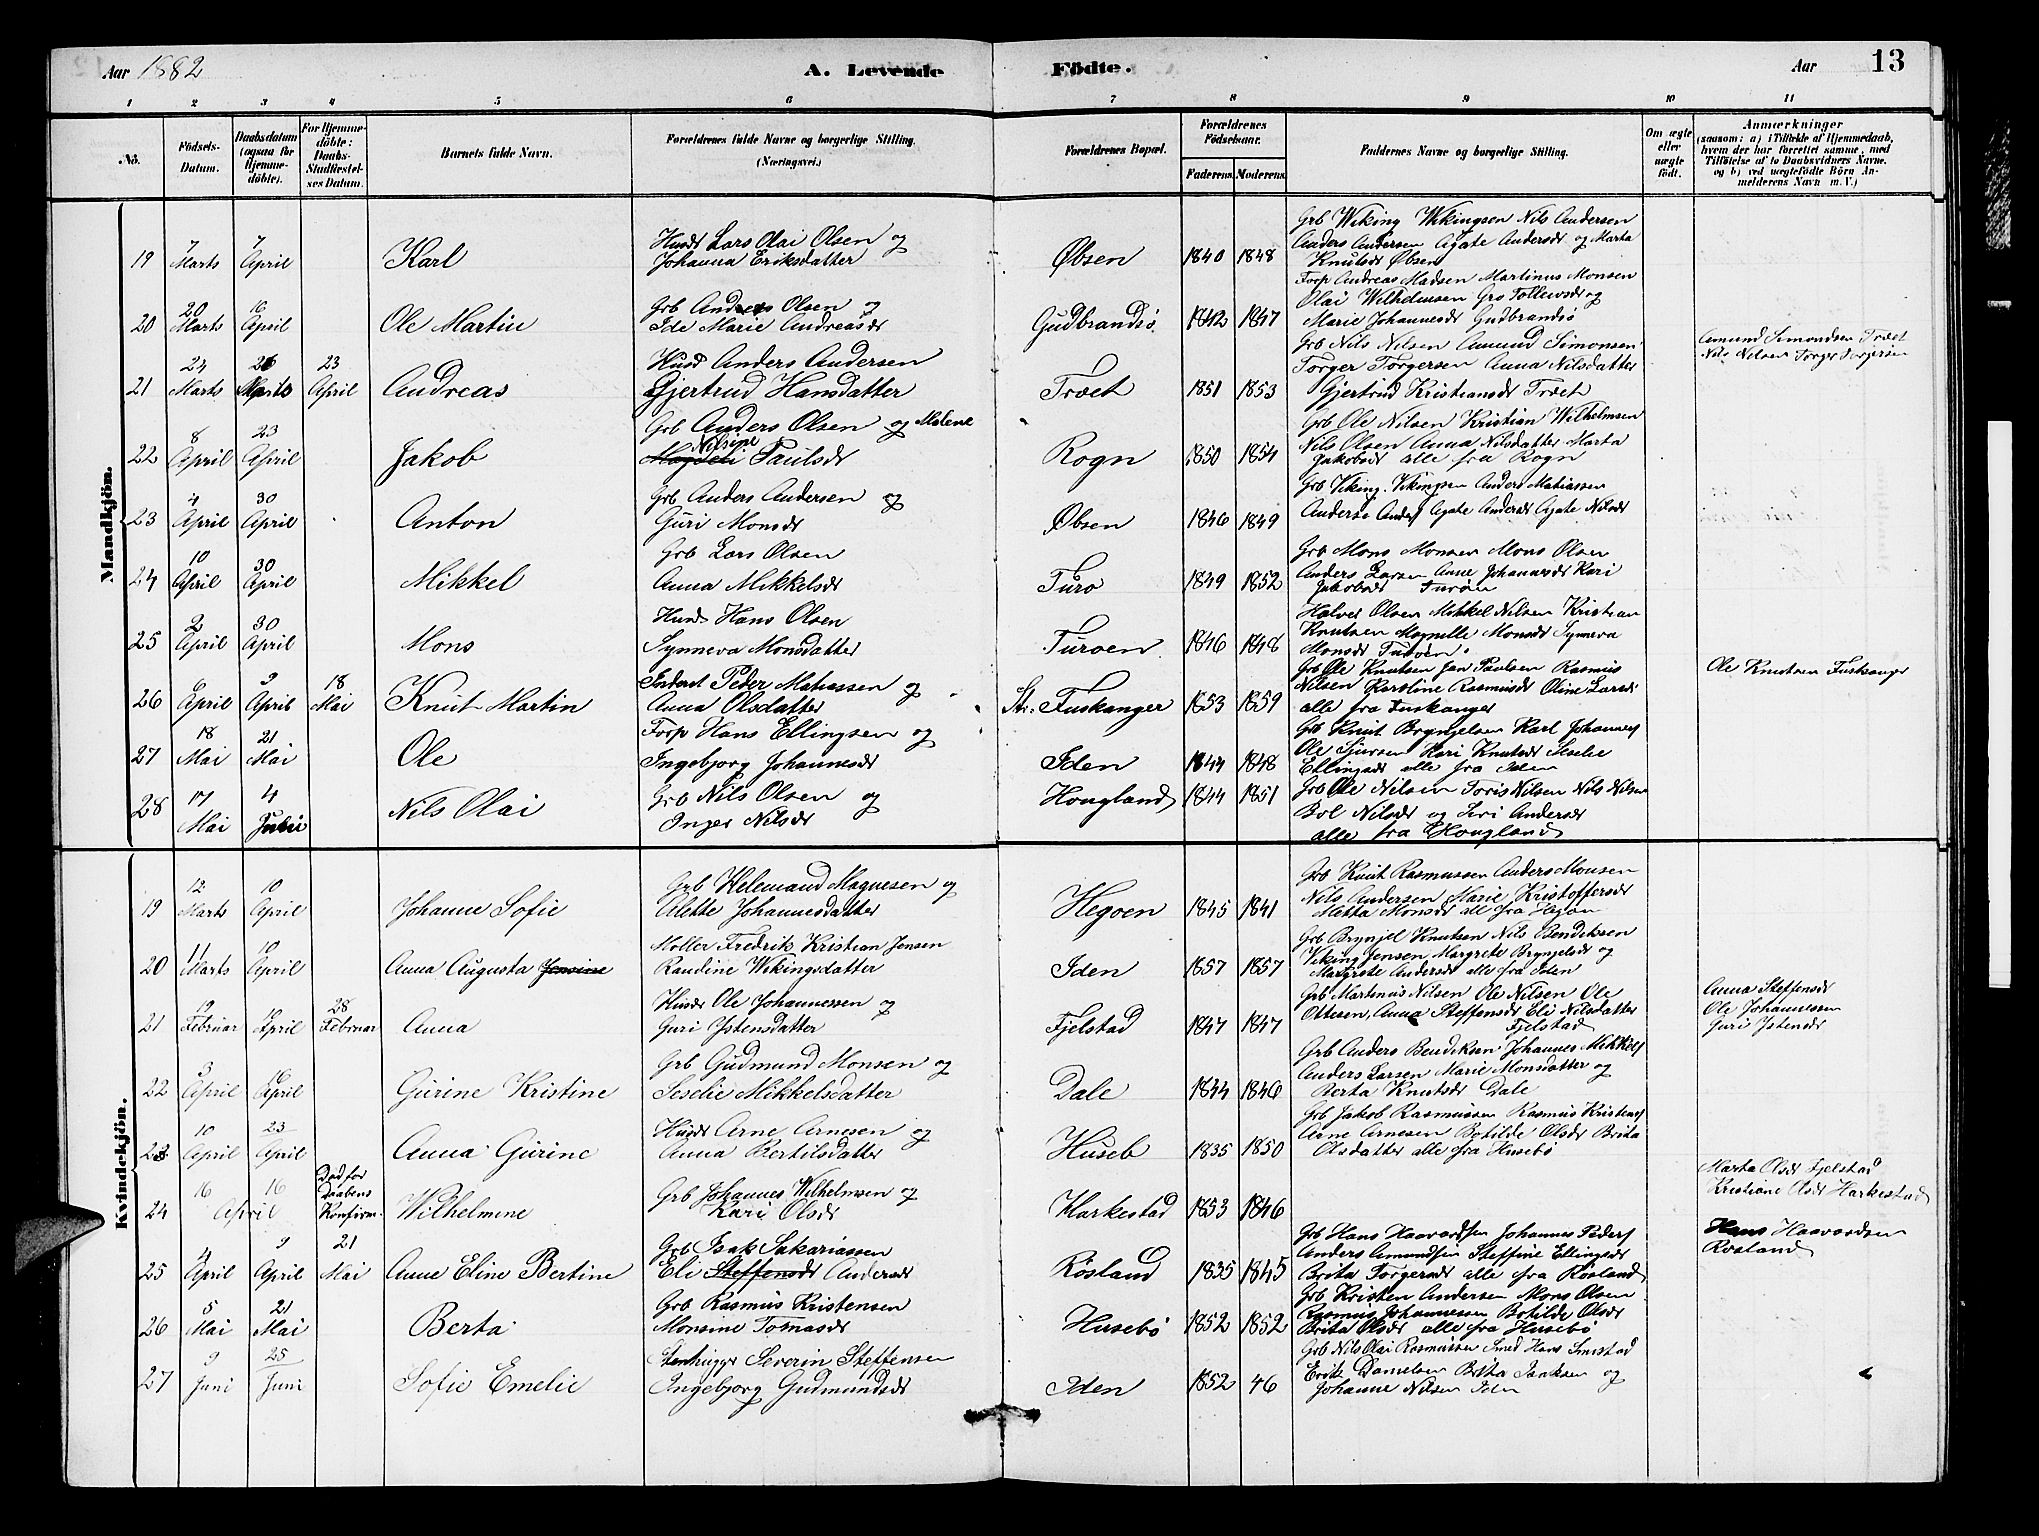 Aar 1882 A. Levende Födte. Aar 13
1 2 3 4 5 6 7 8 9 10 11
No. Födsels-Datum. Daabsdatum (ogsaa for Hjemmedöbte). For Hjemmedöbte: Daabs-Stadfæstelses Datum. Barnets fulde Navn. Forældrenes fulde Navne og borgerlige Stilling. (Næringsvei.) Forældrenes Bopæl. Forældrenes Födselsaar. Faderens. Moderens. Faddernes Navne og borgerlige Stilling. Om ægte eller uægte födt. Anmærkninger (saasom: a) i Tilfælde af Hjemmedaab, hvem der har forrettet samme, med Tilföielse af to Daabsvidners Navne, og b) ved uægtefödte Börn Anmelderens Navn m. V.)
Mandkjön.
19 7 Marts 7 April Karl Husm Lars Olai Olsen og
Johanna Eriksdatter Øbsen 1840 1848
Grb Wiking Wikingsen Nils Andersen
Anders Andersen Agate Andersdr og Marta
Knutsdr Øbsen
20 20 Marts 16 April Ole Martin Grb Anders Olsen og
Ide Marie Andreasdr Gudbrandsö 1842 1847
Forp Andreas Madsen Martinus Monsen
Olai Wilhelmsen Gro Tollewsdr og
Marie Johannesdr Gudbrandsö
21 24 Marts 26 Marts 23 April Andreas Husm Anders Andersen
Gjertrud Hansdatter Træet 1851 1853
Grb Nils Nilsen Amund Simonsen
Torger Torgersen Anna Nilsdatter
Gjertrud Kristiansdr Træet
Amund Simondsen Træet
Nils Nilsen Torger Torgersen
22 8 April 23 April Jakob Grb Anders Olsen og Malene
Nilsine Paulsdr Rogn 1850 1854
Grb Ole Nilsen Kristian Wilhelmsen
Nils Olsen Anna Nilsdatter Marta
Jakobsdr alle fra Rogn
23 4 April 30 April Anton Grb Anders Andersen og
Guri Monsdr Øbsen 1846 1849
Grb Viking Vikingsen Anders Matiassen
Anders Anders Agate Andersdr Agate Nilsdr
24 10 April 30 April Mikkel Grb Lars Olsen
Anna Mikkelsdr Turo 1849 1852
Grb Mons Monsen Mons Olsen
Anders Larsen Anne Johannesdr Kari
Jakobsdr Turöen
25 2 April 30 April Mons Husm Hans Olsen
Synneva Monsdatter Turoen 1846 1848
Halvor Olsen Mikkel Nilsen Kristian
Knutsen Magnille Monsdr Synneva
Monsdr Turöen
26 6 April 9 April 18 Mai Knut Martin Inderst Peder Matiassen og
Anna Olsdatter Str: Fuskanger 1853 1859
Grb Ole Knutsen Jan Paulsen Rasmus
Nilsen Karoline Rasmusdr Oline Larsdr
alle fra Fuskanger
Ole Knutsen Fuskanger
27 18 Mai 21 Mai Ole Forp Hans Ellingsen og
Ingebjorg Johannesdr Iden 1844 1848
Grb Knut Brynjelsen Karl Johannes
Ole Sjursen Kari Knutsdr Seselie
Ellingsdr alle fra Iden
28 17 Mai 4 Juni Nils Olai Grb Nils Olsen og
Inger Nilsdr Hougland 1844 1851
Grb Ole Nilsen Toris Nilsen Nils Nilsen
Bol Nilsdr og Siri Andersdr
alle fra Hougland
Kvindekjön.
19 12 Marts 10 April Johanne Sofie Grb Helemand Magnesen og
Alette Johannesdatter Hegoen 1845 1841
Grb Knut Rasmussen Anders Monsen
Nils Andersen Marie Kristoffersdr
Metta Monsdr all fra Hegöen
20 11 Marts 10 April Anna Augusta Jensine Moller Fredrik Kristian Jensen
Raudine Wikingsdatter Iden 1857 1857
Grb Brynjel Knutsen Nils Bendiksen
Viking Jensen Margrete Brynjelsdr og
Margrete Andersdr alle fra Iden
21 19 Februar 10 April 28 Februar Anna Husm Ole Johannessen og
Guri Istensdatter Fjelstad 1847 1847
Grb Martinus Nilsen Ole Nilsen Ole
Ottesen, Anna Steffensdr Eli Nilsdatter
Fjelstad
Anna Steffensdr
Ole Johannessen
Guri Istensdr
22 3 April 16 April Gurine Kristine Grb Gudmund Monsen og
Seselie Mikkelsdatter Dale 1844 1846
Grb Anders Bendiksen Johannes Mikkels
Anders Larsen Marie Monsdatter og
Berta Knutsdr Dale
23 10 April 23 April Anna Gurine Husm Arne Arnesen og
Anna Bertilsdatter Huseb 1835 1850
Grb Jakob Rasmussen Rasmus Kristens
Arne Arnesen Botilde Olsdr Brita
Olsdatter alle fra Husebö
24 16 16 April Död for Daabens Konfirm. Wilhelmine Grb Johannes Wilhelmsen og
Kari Olsdr Harkestad 1853 1846
Marta Olsdr Fjelstad
Kristiane Olsdr Harkestad
25 4 April 9 April 21 Mai Anne Eline Bertine Grb Isak Sakariassen
Eli Steffensdr Andersdr Rösland 1835 1845
Grb Hans Haavordsen Johannes Peders
Anders Amundsen Steffine Ellingsdr
Brita Torgersdr alle fra Rösland
Hans Haavordsen
Rosland
26 5 Mai 21 Mai Berta Grb Rasmus Kristensen
Monsine Tomasdr Husebö 1852 1852
Grb Kristen Andersen Mons Olsen
Rasmus Johannessen Botilde Olsdr
Brita Olsdr alle fra Husebö
27 9 Juni 25 Juni Sofie Emelie Stenhugger Severin Steffensen
Ingebjorg Gudmundsdr Iden 1852 46
Grb Nils Olai Rasmussen Smed Hans Smestad
Erik Danielsen Brita Isaksen og
Johanne Nilsen Iden